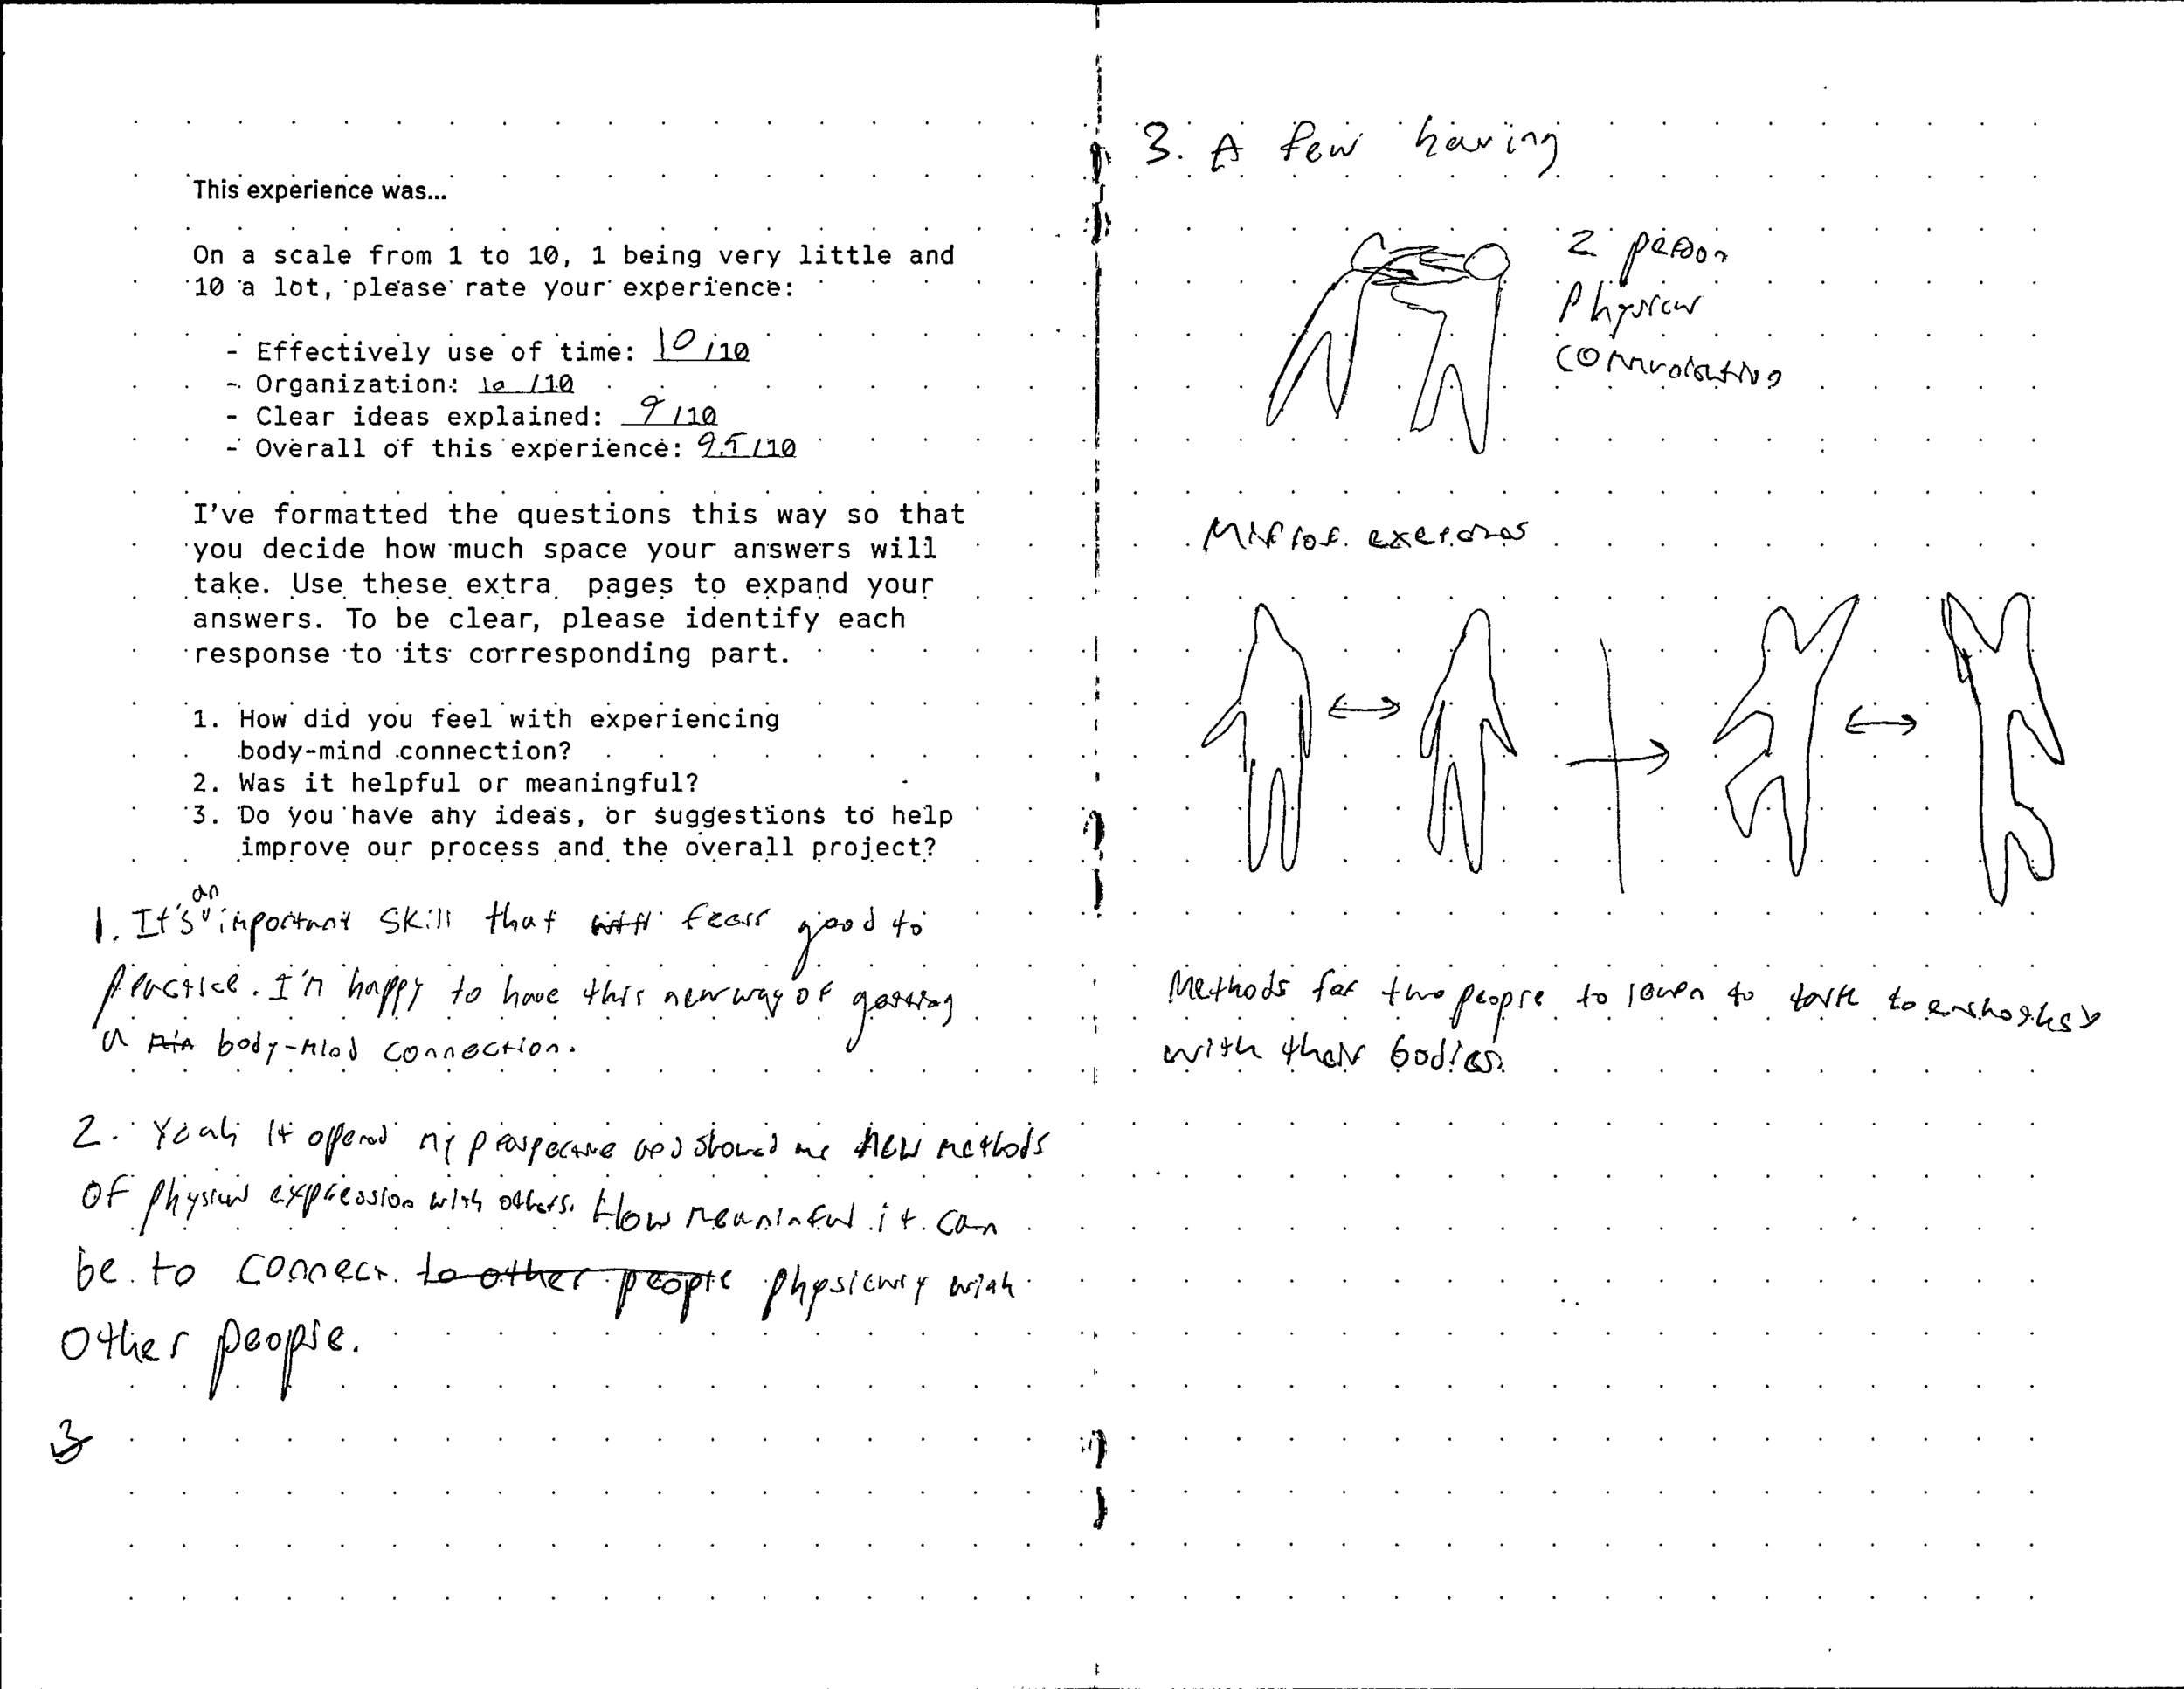 This experience was...
On a scale from 1 to 10, 1 being very little and
10 a lot, please rate your experience:
- Effectively use of time: 10/10
- Organization: 10/10
- Clear ideas explained: 9/10
- Overall of this experience: 9.5/10
I've formatted the questions this way so that
you decide how much space your answers will
take. Use these extra pages to expand your
answers. To be clear, please identify each
response to its corresponding part.
1. How did you feel with experiencing
body-mind connection?
2. Was it helpful or meaningful?
3. Do you have any ideas, or suggestions to help
improve our process and the overall project?
1. It's an important skill that feels good to
practice. I'm happy to have this new way of getting
a body-mind connection.
2. Yeah it offered my perspective and showed me new methods
of physical expression with others. How meaninful it can
be to connect to other people physically with
other people.
3
3. A few having
2 person
Physical
Mirror exercises
Methods for two people to learn to talk to
with their bodies.